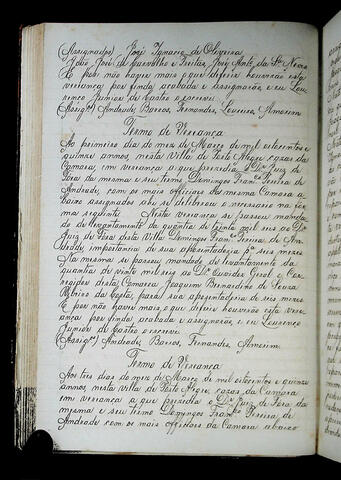 (Assignados) José Ignacio de Oliveira
João José de Carvalho e Freitas, José Antº da Sª Neves
E por não haver mais o que deferir houverão esta
veriança por finda, acabada e assignárão e eu Lou
renço Junior de Castro o escrevi
(Assigºs) Andrade, Barros, Fernandes, Loureiro, Amorim
Termo de Veriança
Ao primeiro dia do mez de Março de mil oitocentos e
quinze annos, nesta Villa de Porto Alegre, cazas da
Camara, em veriança a que prezidio o Dr. Juiz de
Fóra da mesma e seu termo Domingos Franco Pereira de
Andrade, com os mais officiaes da mesma Camara a
baixo assignados ahi se deliberou o necessario na for
ma seguinte. Nesta veriança se passou manda
do de levantamento da quantia de trinta mil reis ao Dr.
Juiz de Fóra desta Villa Domingos Franco Pereira de An
drade importancia de sua apozentadoria de seis mezes
Na mesma se passou mandado de levantamento da
quantia de vinte mil reis ao Dr. Ouvidor Geral e Cor
regidor desta Comarca Joaquim Bernardino de Senna
Ribeiro da Costa, para sua apozentadoria de seis mezes
E por não haver mais o que deferir houverão esta veri
ança por finda acabada e assignárão e eu Lourenço
Junior de Castro o escrevi
(Assigºs) Andrade, Barros, Fernandes, Amorim
Termo de Veriança
Aos tres dias do mez de Março de mil oitocentos e quinze
annos nesta villa de Porto Alegre, cazas da Camara
em veriança a que prezidio o Dr. Juiz de Fóra da
mesma e seu termo Domingos Franco Pereira de
Andrade com os mais officiaes da Camara abaixo